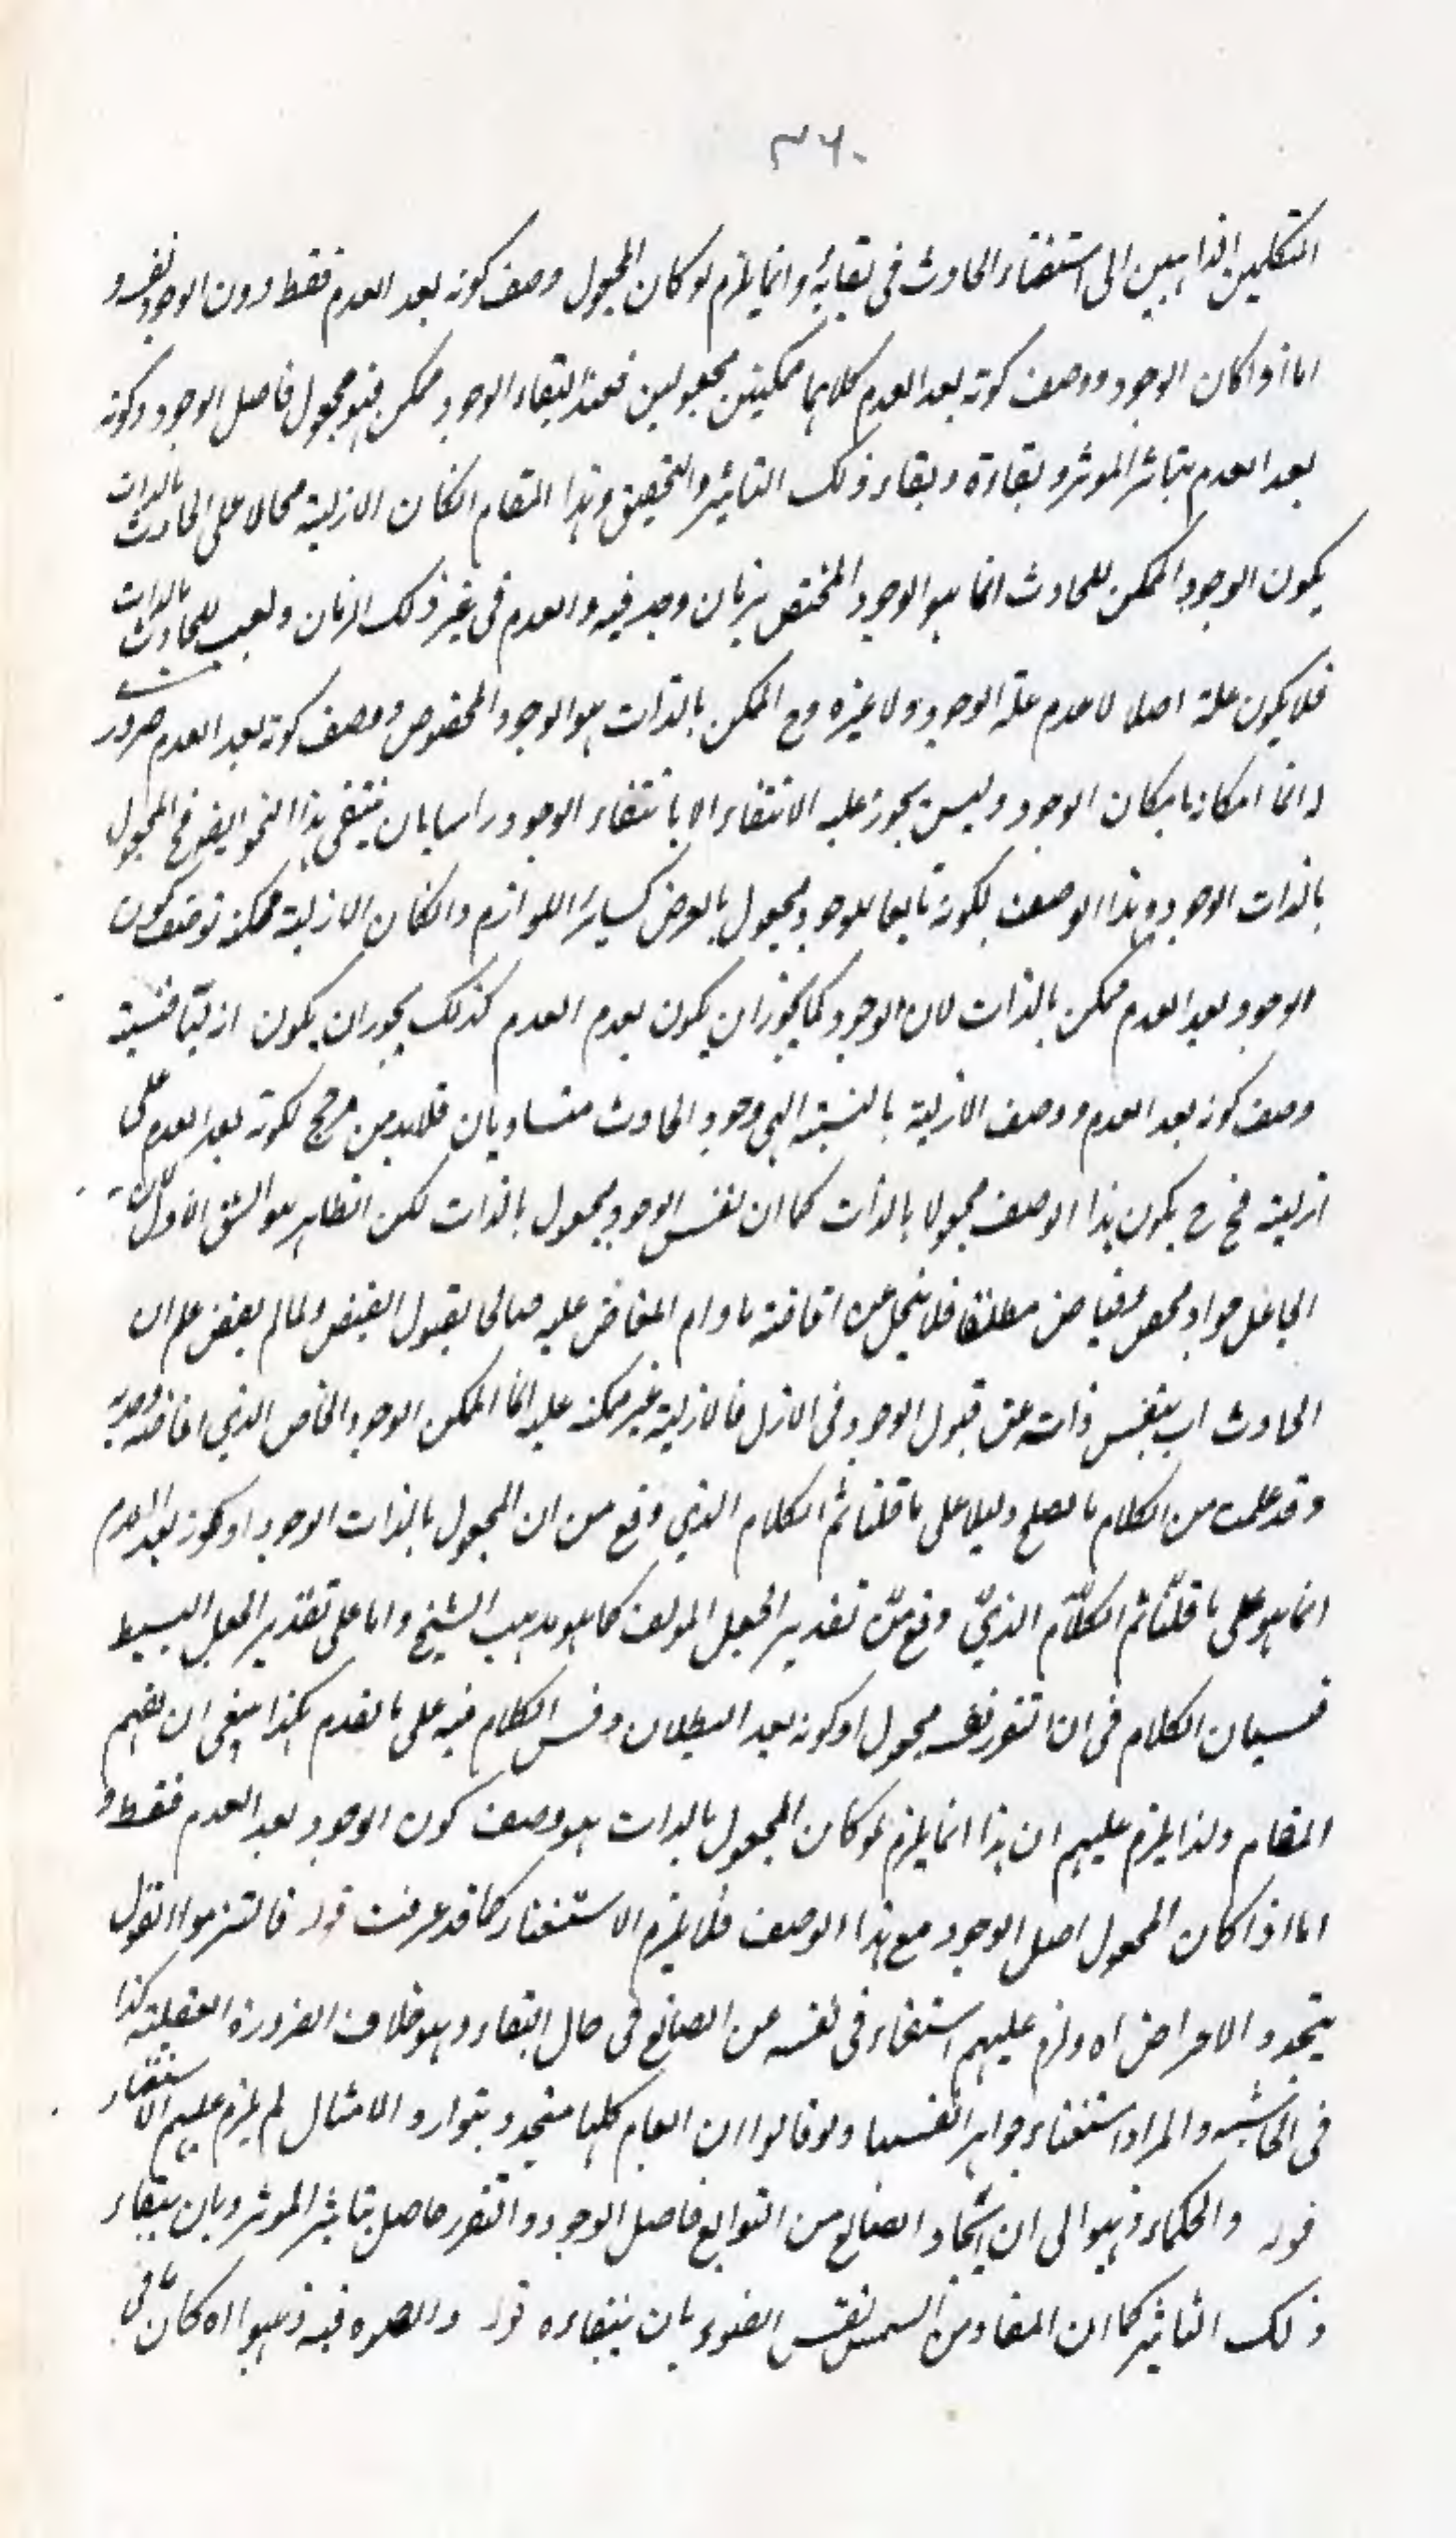 ٣٦٠
المتكلمين الذاهبين الى استغناء الحادث فى بقائه وانما يلزم لو كان المجعول وصف كونه بعد العدم فقط دون الوجود نفسه و
اما اذا كان الوجود ووصف كونه بعد العدم كلاهما ممكنين مجعولين فعند البقاء الوجود ممكن فهو مجعول فاصل الوجود وكونه
بعد العدم بتاثير الموثر وبقاءه وبقاء ذلك التاثير والتحقيق فى هذا المقام ان كان الازلية محالا على الحادث بالذات
يكون الوجود الممكن للحادث انما هو الوجود المختص بزمان وجد فيه والعدم فى غير ذلك الزمان واجب للحادث بالذات
فلا يكون علة اصلا لا عدم علة الوجود ولا غيره وح الممكن بالذات هو الوجود المخصوص ووصف كونه بعد العدم ضرورى
وانما امكانه بامكان الوجود وليس يجوز عليه الانتفاء الا بانتفاء الوجود راسا بان ينتفى هذا النحو ايضا فح المجعول
بالذات الوجود وهذا الوصف لكونه تابعا للوجود مجعول بالعرض كسائر اللوازم وان كان الازلية ممكنة توصف كون
الوجود بعد العدم ممكن بالذات لان الوجود كما يجوز ان يكون بعدم العدم كذلك يجوز ان يكون ازليا فنسبته
وصف كونه بعد العدم ووصف الازلية بالنسبة الى وجود الحادث متساويان فلابد من مرجح لكونه بعد العدم على
ازلية فح يكون هذا الوصف مجعولا بالذات كما ان نفس الوجود مجعول بالذات لكن الظاهر هو الشق الاول لان
الجاعل جواد محض فياض مطلق فلا يبخل عن افاضته ما دام المفاض عليه صالحا لقبول الفيض ولما لم يفض علم ان
الحادث اب بنفس ذاته عن قبول الوجود فى الازل فالازلية غير ممكنة عليه انما الممكن الوجود الخاص الذي افاضه
وقد علمت من الكلام ما يصلح دليلا على ما قلنا ثم الكلام الذي وقع من ان المجعول بالذات الوجود او كونه بعد العدم
انما هو على ما قلنا ثم الكلام الذي وقع من تقدير الجعل المولف كما هو مذهب الشيخ واما على تقدير الجعل البسيط
فسيان الكلام فى ان التقرر نفسه مجعول او كونه بعد البطلان وقس الكلام فيه على ما تقدم هكذا ينبغى ان يفهم
المقام ولذا يلزم عليهم ان هذا انما يلزم لو كان المجعول بالذات هو وصف كون الوجود بعد العدم فقط و
اما اذا كان المجعول اصل الوجود مع هذا الوصف فلا يلزم الاستغناء كما قد عرفت قوله فالتزموا القول
بتجدد الاعراض اه ولزم عليهم استغناء فى نفسه عن الصانع فى حال البقاء وهو خلاف الضرورة العقلية كذا
فى الحاشية والمراد استغناء جواهر انفسها ولو قالوا ان العالم كلها متجدد بتوارد الامثال لم يلزم عليهم الاستغناء
قوله والحكماء ذهبوا الى ان ايجاد الصانع من التوابع فاصل الوجود والتقرر حاصل بتاثير الموثر وباق ببقاء
ذلك التاثير كما ان المفاد من الشمس نفس الضوء باق ببقاءه قوله فيه ذهبوا